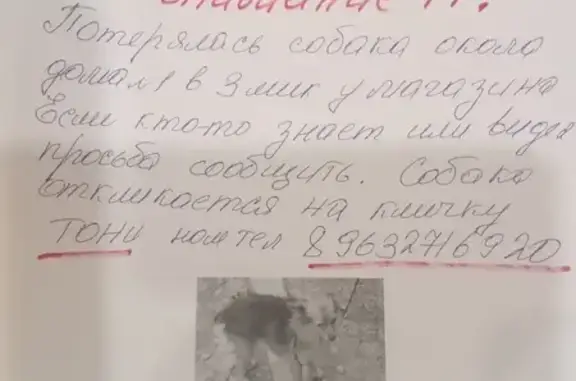 Внимание !!!
Потерялась собака около
дома 1 в 3 мик у магазина
Если кто-то знает или видел
просьба сообщить. Собака
откликается на кличку
Тони ном тел 89632716920